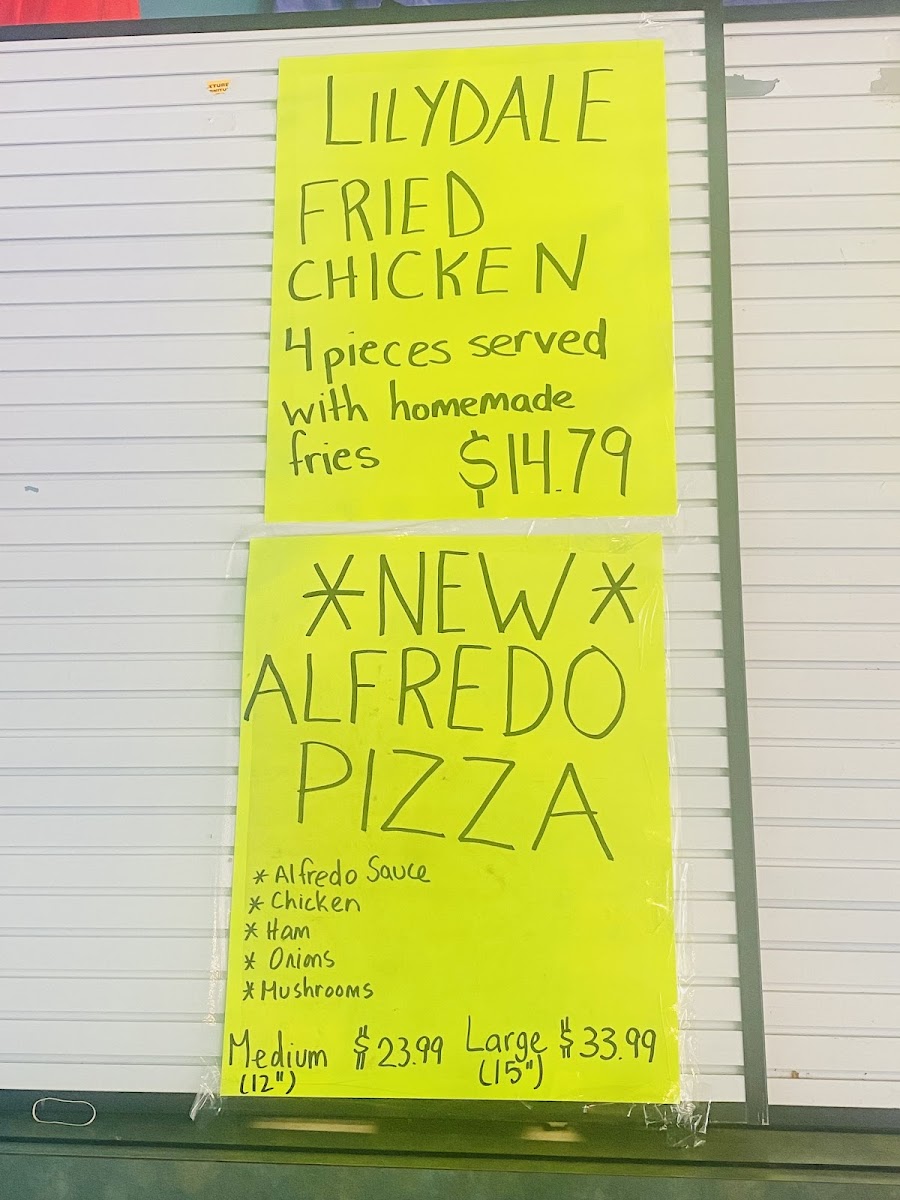 LILYDALE
FRIED
CHICKEN
4 pieces served
with homemade
fries $14.79
*NEW*
ALFREDO
PIZZA
* Alfredo Sauce
* Chicken
* Ham
* Onions
* Mushrooms
Medium $23.99 Large $33.99
(12") (15")